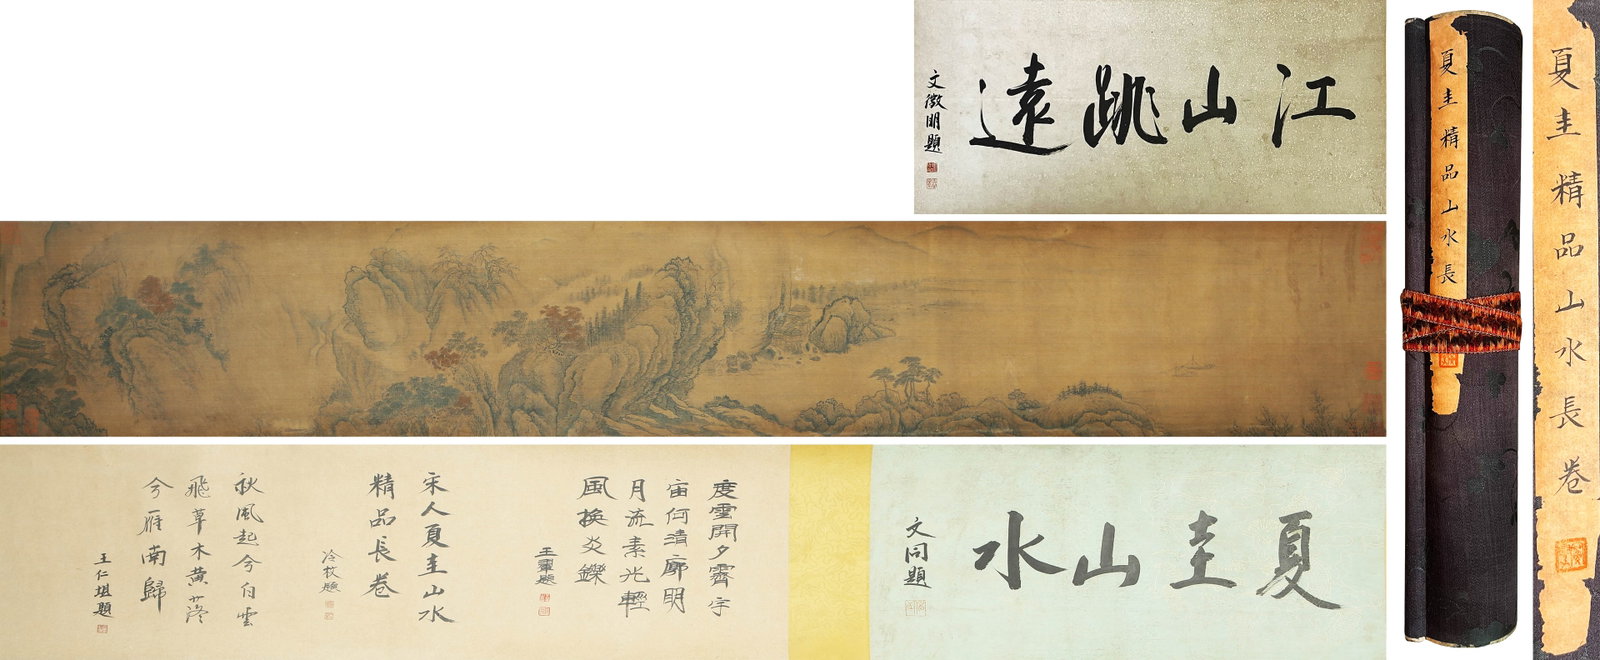 江山跳遠
文徵明題
夏圭山水
文同題
度雲開夕霽宇
宙何清廓明
月流素光輕
風換炎鑠
王鞏題
宋人夏圭山水
精品長卷
冷枚題
秋風起兮白雲
飛草木黃落
兮雁南歸
王仁堪題
夏圭精品山水長
夏圭精品山水長卷